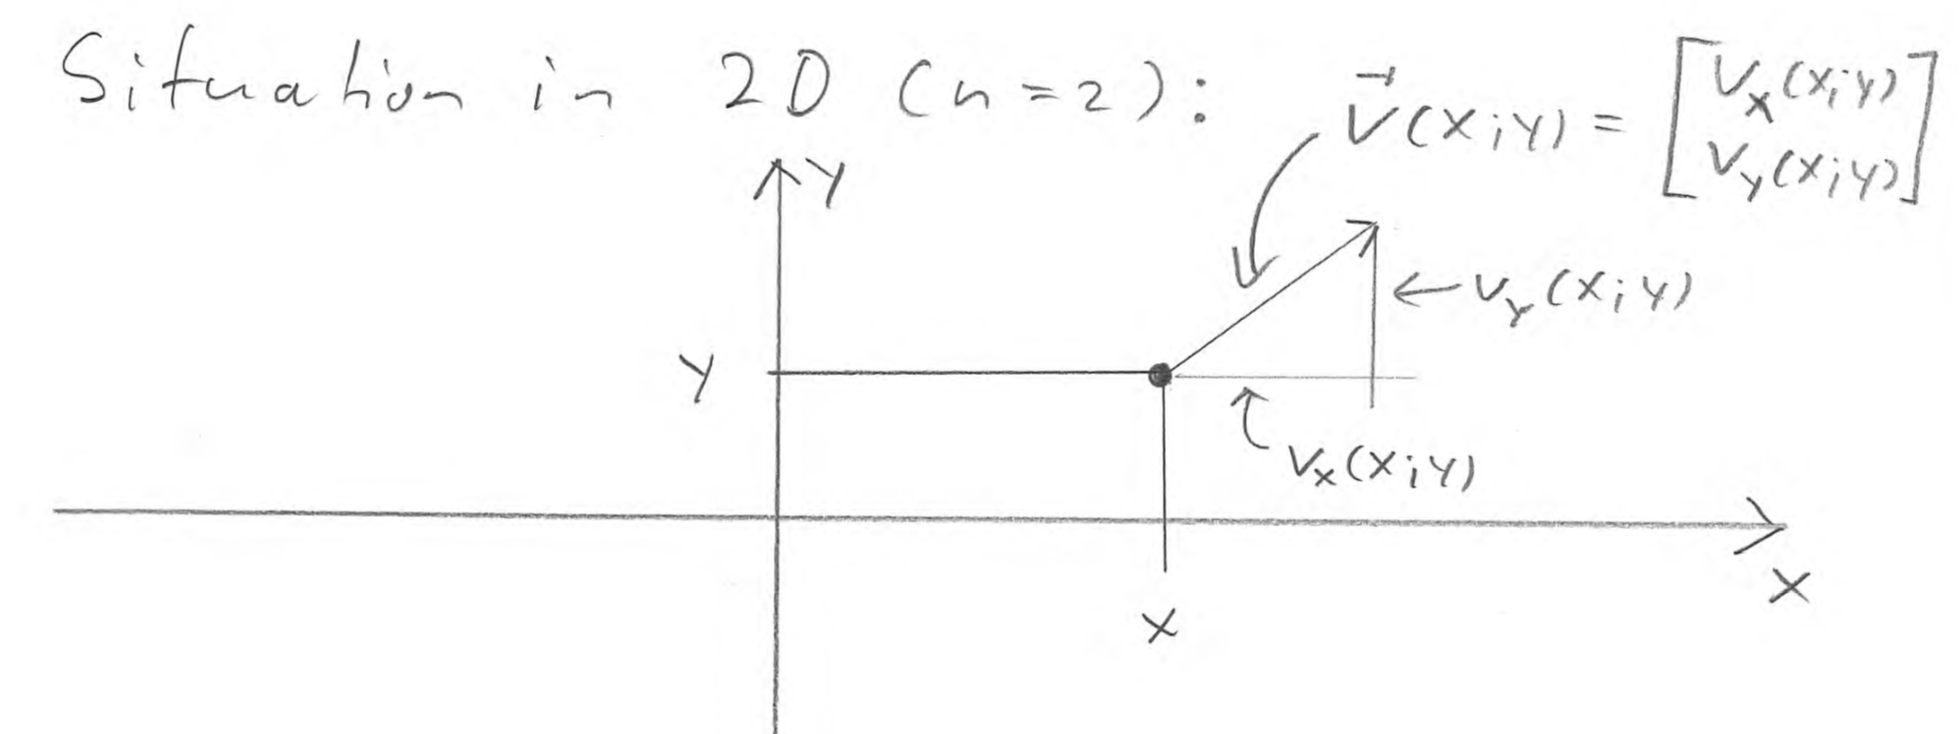 Situation in 2D (n=2): v⃗(x;y) = [vₓ(x;y)
v_y(x;y)]
y
← v_y(x;y)
y
vₓ(x;y)
x
x